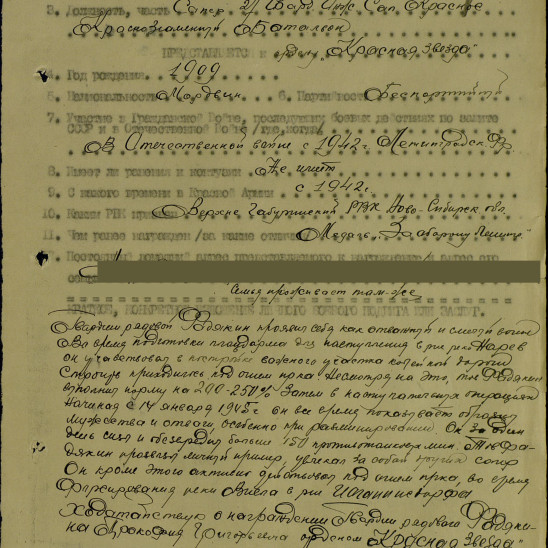 3. Должность, часть Сапер 2/ Гвард Инж Сап. Красно
Краснознаменный Батальон
ПРЕДСТАВЛЕТСЯ к ордену "Красная Звезда"
4. Год рождения 1909
5. Национальность Мордвин 6. Партийность Беспартийный
7. Участие в Гражданской Войне, последующих боевых действиях по защите
СССР и в Отечественной Войне /где, когда/
В Отечественной войне с 1942 г. Ленинградск.
8. Имеет ли ранения и контузии Не имеет
9. С какого времени в Красной Армии с 1942 г.
10. Каким РВК призван РВК Ново-Сибирск обл.
11. Чем ранее награжден /за какие отличия Медаль "За оборону Ленингр."
12. Постоянный домашний адрес представляемого к награждению и адрес его
семьи
Семья проживает там-же
КРАТКОЕ, КОНКРЕТНОЕ ИЗЛОЖЕНИЕ ЛИЧНОГО БОЕВОГО ПОДВИГА ИЛИ ЗАСЛУГ.
Гвардии рядовой Фадякин проявил себя как отважный и смелый воин
Во время подготовки плацдарма для наступления в р-не рек. Нарев
он участвовал в постройке важного участка колейной дороги
Строить приходилось под огнем врага. Несмотря на это, тов Фадякин
выполнял норму на 200-250% Затем в наступательных операциях
Начиная с 14 января 1945 г он все время показывает образцы
мужества и отваги, особенно при разминировании. Он за один
день снял и обезвредил больше 150 противотанковых мин. Тов Фа-
дякин проявлял личный пример, увлекал за собой других сапер
Он кроме этого активно действовал под огнем врага, во время
форсирования реки Алле в р-не
Ходатайствую о награждении Гвардии рядового Фадяки-
на Прокофия Григорьевича орденом "КРАСНАЯ ЗВЕЗДА"